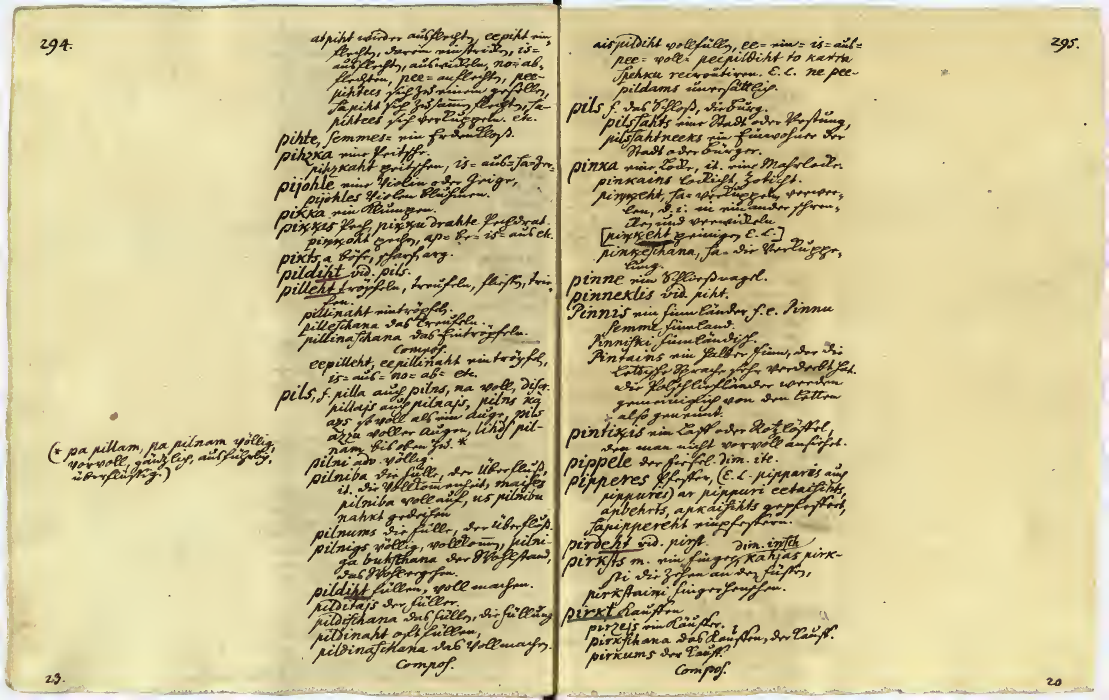 294.
atpiht wieder ausflechten, eepiht ein-
flechten, darein einstricken, is=
ausflechten, auswickeln, no= ab-
flechten, pee= anflechten, pee-
pihtees sich zu einem gesellen,
sapiht sich zusamen flechten, sa-
pihtees sich verkuppeln. etc.
pihte, semmes= ein Erden Kloß.
pihzka eine Peitsche.
pihzkaht peitschen, is= aus= sa= zer-
pijohle eine Violin oder Geige,
pijohles Violen Bluhmen.
pikka ein Klumpen.
pikkis Pech, pikku drahte Pechdrat.
pikkoht pechen, ap= be= is= aus etc.
pikts, a böse, scharf, arg.
pildiht vid. pils.
pilleht tröpfeln, treufeln, fliessen, trie-
fen.
pillinaht eintröpfeln.
pilleschana das Treufeln.
pillinaschana das Eintröpfeln.
Compos.
eepilleht, eepillinaht eintröpfeln,
is= aus= no= ab= etc.
pils, f. pilla auch pilns, na voll,
pillajs auch pilnajs, pilns ka
azs so voll als ein Auge, pils
azzu voller Augen, lihds pil-
nam bis oben zu. *
(* pa pillam, pa pilnam völlig,
vorvoll, gänzlich, ausführlich,
überflüssig.)
pilni adv. völlig.
pilniba die Fülle, der Überfluß,
it. die Vollkommenheit, maises
pilniba vollauf, us pilnibu
nahkt gedeihen
pilnums die Fülle, der Überfluß.
pilnigs völlig, vollkomen, pilni-
ga buhschana der Wohlstand,
das Wohlergehen.
pildiht füllen, voll machen.
pilditajs der Füller.
pildischana das Füllen, die Füllung
pildinaht oft füllen,
pildinaschana das Vollmachen.
Compos.
23.
295.
aispildiht vollfüllen, ee= ein= is= aus=
pee= voll= peepildiht to karra
spehku recroutiren. E. L. ne pee-
pildams unersättlich.
pils f. das Schloß, die Burg.
pilssahts eine Stadt oder Vestung,
pilssahtneeks ein Einwohner der
Stadt oder Bürger.
pinka eine Lode, it. eine Mahrlocke.
pinkains lodicht, zoticht.
pinkeht, sa= verkuppeln, verwer-
len, d. i. in einander schren-
ken und verwickeln
[pinkeht peinigen E. L.]
pinkeschana, sa= die Verkuppe-
lung.
pinne ein Schließnagel.
pinneklis vid. piht.
Pinnis ein Finnländer f. e. Pinnu
semme Finnland.
Pinniski Finnländisch.
Pintains ein halber Finn, der die
Lettische Sprache sehr verderbt hat.
die Polschliefländer werden
gemeiniglich von den Letten
also genennt.
pintikis ein Laff oder Rotzlöffel,
den man nicht vorvoll ansieht.
pippele der dim. ite.
pipperes Pfeffer, (E. L. pippares auch
pippures) ar pippuri eetaisihts,
apbehrts, apkaisihts gepfeffert,
sapippereht einpfeffern.
pirdeht vid. pirst. dim. insch
pirksts m. ein Finger, kahjas pirk-
sti die Zehen an den Füßen,
pirkstaini Fingerhenschen.
pirkt kauffen
pirzejs ein Käuffer.
pirkschana das Kauffen, der Kauff.
pirkums der Kauff.
Compos.
20